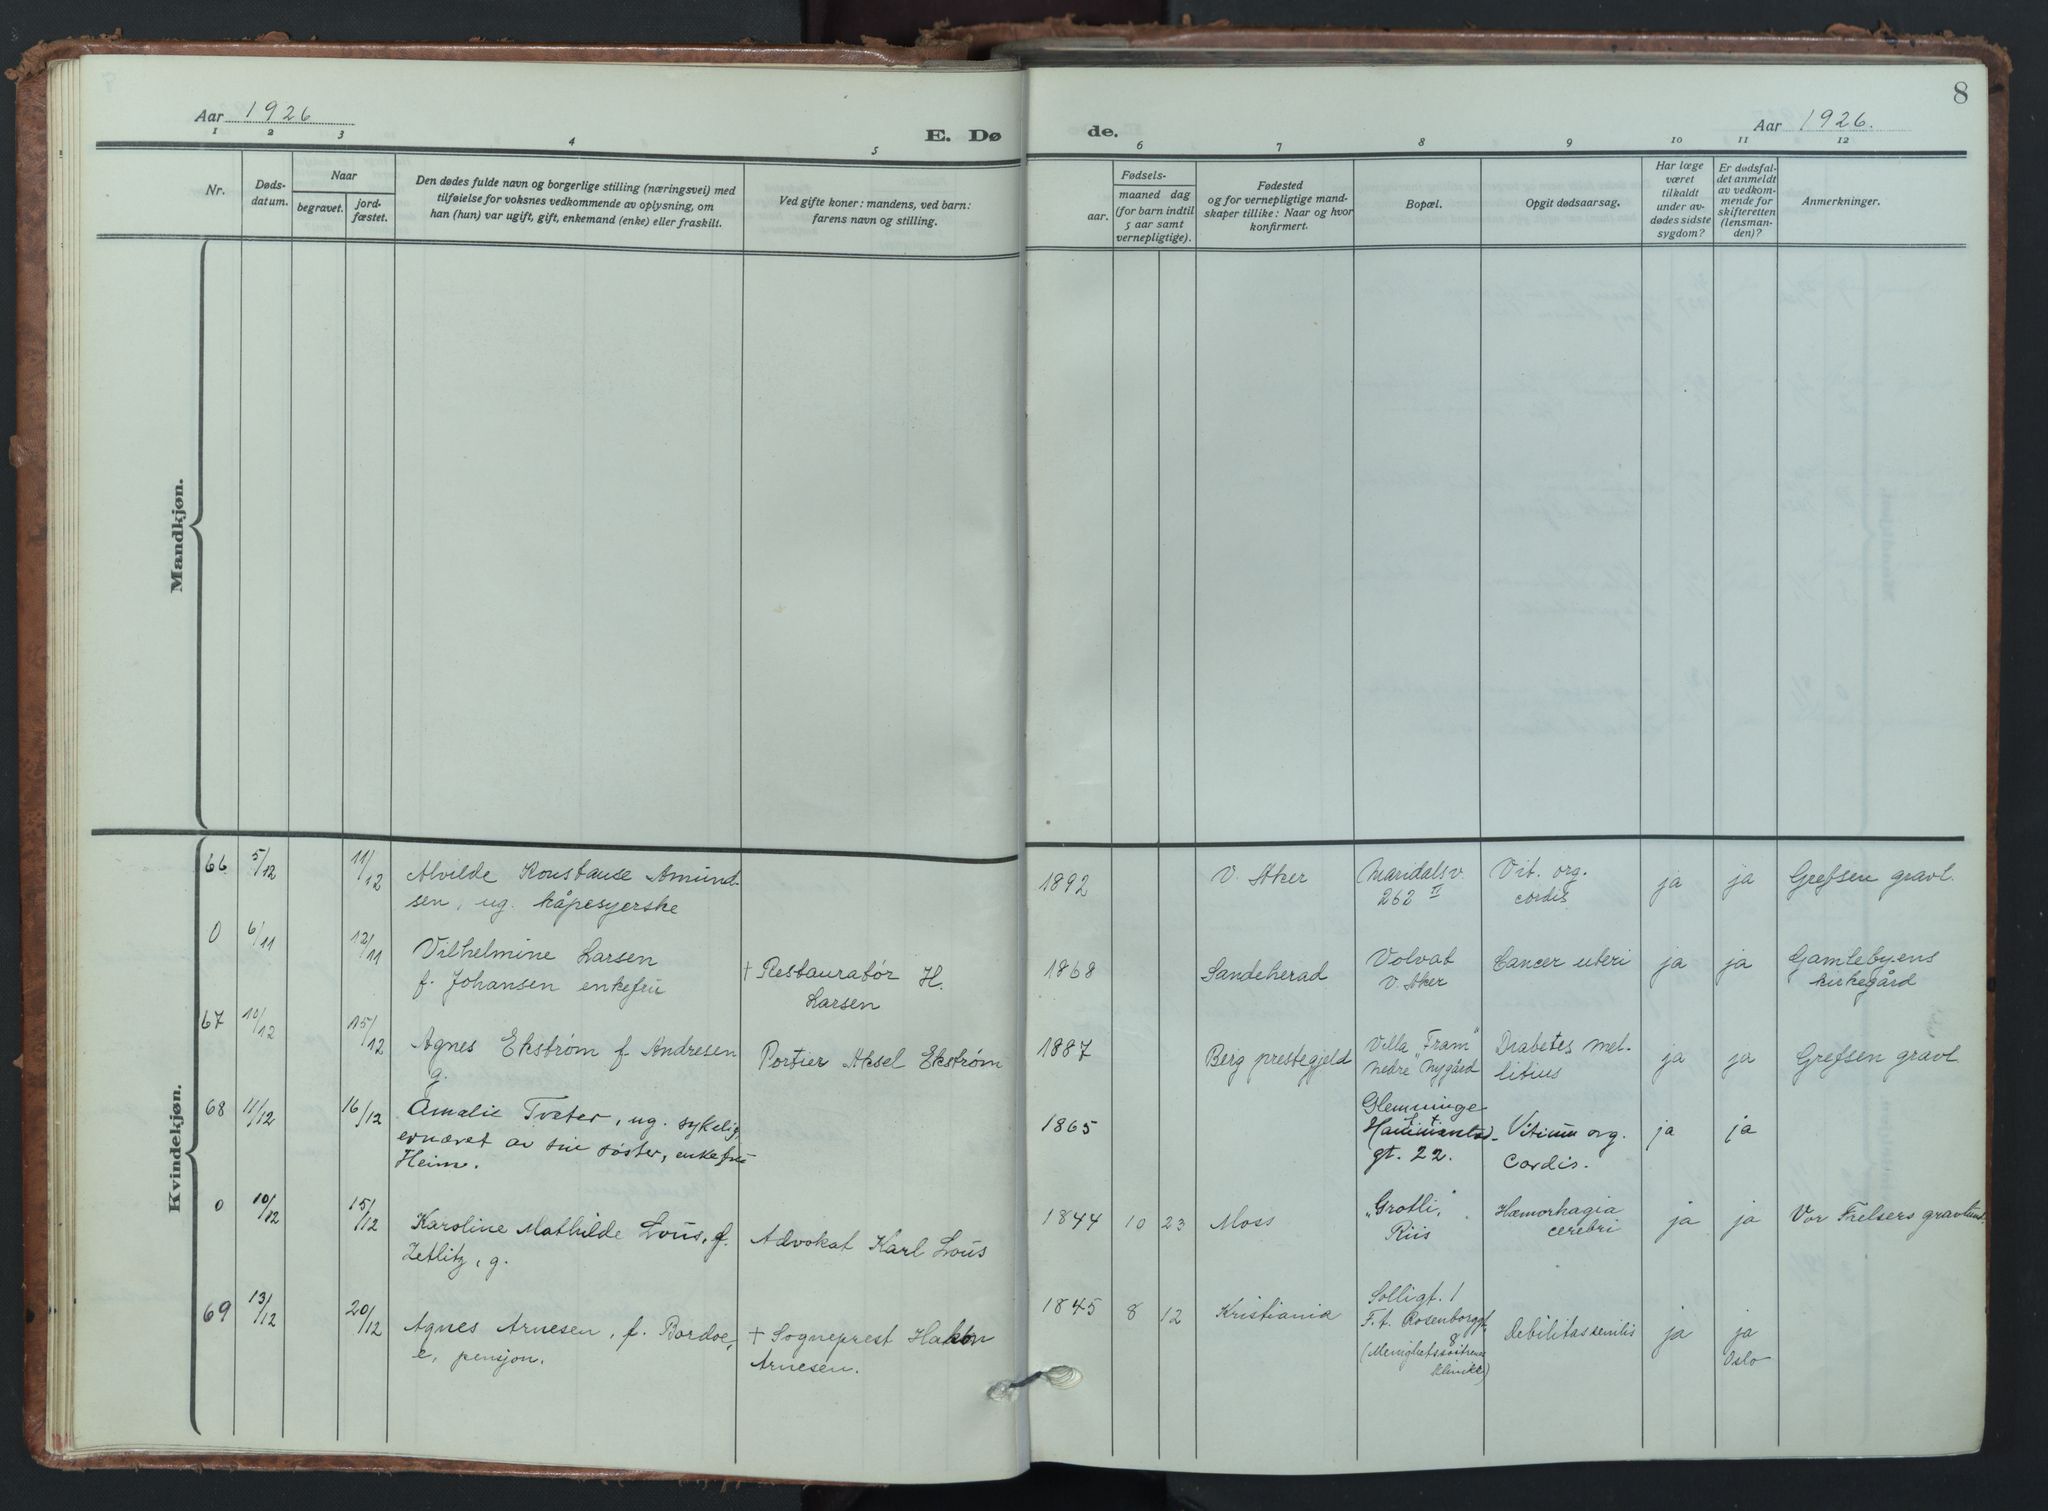 Aar 1926
E. Dø
de.
Aar 1926.
8
1 2 3 4 5 6 7 8 9 10 11 12
Nr.
Døds-
datum.
Naar
begravet.
jord-
fæstet.
Den dødes fulde navn og borgerlige stilling (næringsvei) med
tilføielse for voksnes vedkommende av oplysning, om
han (hun) var ugift, gift, enkemand (enke) eller fraskilt.
Ved gifte koner: mandens, ved barn:
farens navn og stilling.
Fødsels-
aar.
maaned dag
(for barn indtil
5 aar samt
vernepligtige).
Fødested
og for vernepligtige mand-
skaper tillike: Naar og hvor
konfirmert.
Bopæl.
Opgit dødsaarsag.
Har læge
været
tilkaldt
under av-
dødes sidste
sygdom?
Er dødsfal-
det anmeldt
av vedkom-
mende for
skifteretten
(lensman-
den)?
Anmerkninger.
Mandkjøn.
Kvindekjøn.
66 5/12 11/12
Alvilde Konstanse Amund-
sen, ug. kåpesyerske
1892
V. Aker
Maridalsv.
262 II
Vit. org.
cordis
ja ja
Grefsen gravl.
0 6/11 12/11
Vilhelmine Larsen
f. Johansen enkefru
+ Restauratør H.
Larsen
1868
Sandeherad
Volvat
V. Aker
Cancer uteri
ja ja
Gamlebyens
kirkegård
67 10/12 15/12
Agnes Ekstrøm f. Andresen
g.
Portier Aksel Ekstrøm
1887
Berg prestegjeld
Villa "Fram"
nedre Nygård
Diabetes mel-
litius
ja ja
Grefsen gravl
68 11/12 16/12
Amalie Tveter, ug. sykelig,
ernæret av sin søster, enkefru
Heim.
1865
Glemminge
gt. 22.
Vitium org.
Cordis.
ja ja
0 10/12 15/12
Karoline Mathilde Loüs, f.
Zetlitz, g.
Advokat Karl Loüs
1844 10 23
Moss
"Grotli",
Riis
Hæmorhagia
cerebri
ja ja
Vor Frelsers gravlund
69 13/12 20/12
Agnes Arnesen, f. Bordoe,
e, pensjon.
+ Sogneprest Hakon
Arnesen.
1845 8 12
Kristiania
Solligt. 1
F.t. Rosenborggt.
8
(Menighetssøstrenes
klinikk)
Debilitas senilis
ja ja
Oslo